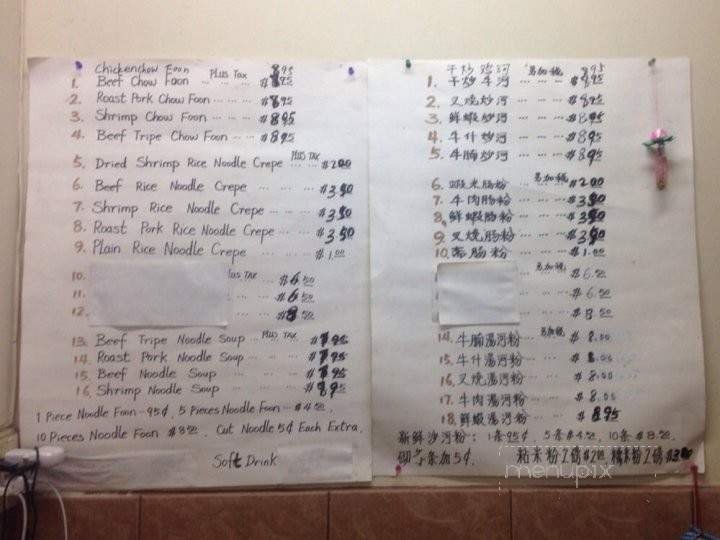 Chickenchow Foon PLUS TAX 8.95
1. Beef Chow Foon ... ... $8.95
2. Roast Pork Chow Foon ... ... $8.95
3. Shrimp Chow Foon ... ... $8.95
4. Beef Tripe Chow Foon ... $8.95
PLUS TAX
5. Dried Shrimp Rice Noodle Crepe ... $2.00
6. Beef Rice Noodle Crepe ... ... $3.50
7. Shrimp Rice Noodle Crepe ... ... $3.50
8. Roast Pork Rice Noodle Crepe ... $3.50
9. Plain Rice Noodle Crepe ... $1.00
10. PLUS TAX $6.50
11. ... $6.50
12. ... $8.50
13. Beef Tripe Noodle Soup ... PLUS TAX $7.95
14. Roast Pork Noodle Soup ... $7.95
15. Beef Noodle Soup ... ... $7.95
16. Shrimp Noodle Soup ... ... $8.95
1 Piece Noodle Foon - 95¢, 5 Pieces Noodle Foon ... $4.50,
10 Pieces Noodle Foon $8.50. Cut Noodle 5¢ Each Extra.
Soft Drink
干炒鸡河 8.95
1. 干炒牛河 另加税 $8.95
2. 叉燒炒河 ... ... $8.95
3. 鮮蝦炒河 ... ... $8.95
4. 牛什炒河 ... ... $8.95
5. 牛腩炒河 ... ... $8.95
6. 蝦米肠粉 另加税 $2.00
7. 牛肉肠粉 ... ... $3.50
8. 鮮蝦肠粉 ... ... $3.50
9. 叉燒肠粉 ... ... $3.50
10. 斋肠粉 ... ... $1.00
另加税 $6.50
... $6.50
... $8.50
14. 牛腩湯河粉 另加税 $8.00
15. 牛什湯河粉 ... $8.00
16. 叉燒湯河粉 ... $8.00
17. 牛肉湯河粉 ... $8.00
18. 鮮蝦湯河粉 ... $8.95
新鮮沙河粉: 1条95¢, 5条$4.50, 10条$8.50,
切每条加5¢. 粘米粉2磅$2.00 糯米粉2磅$3.00
menupix